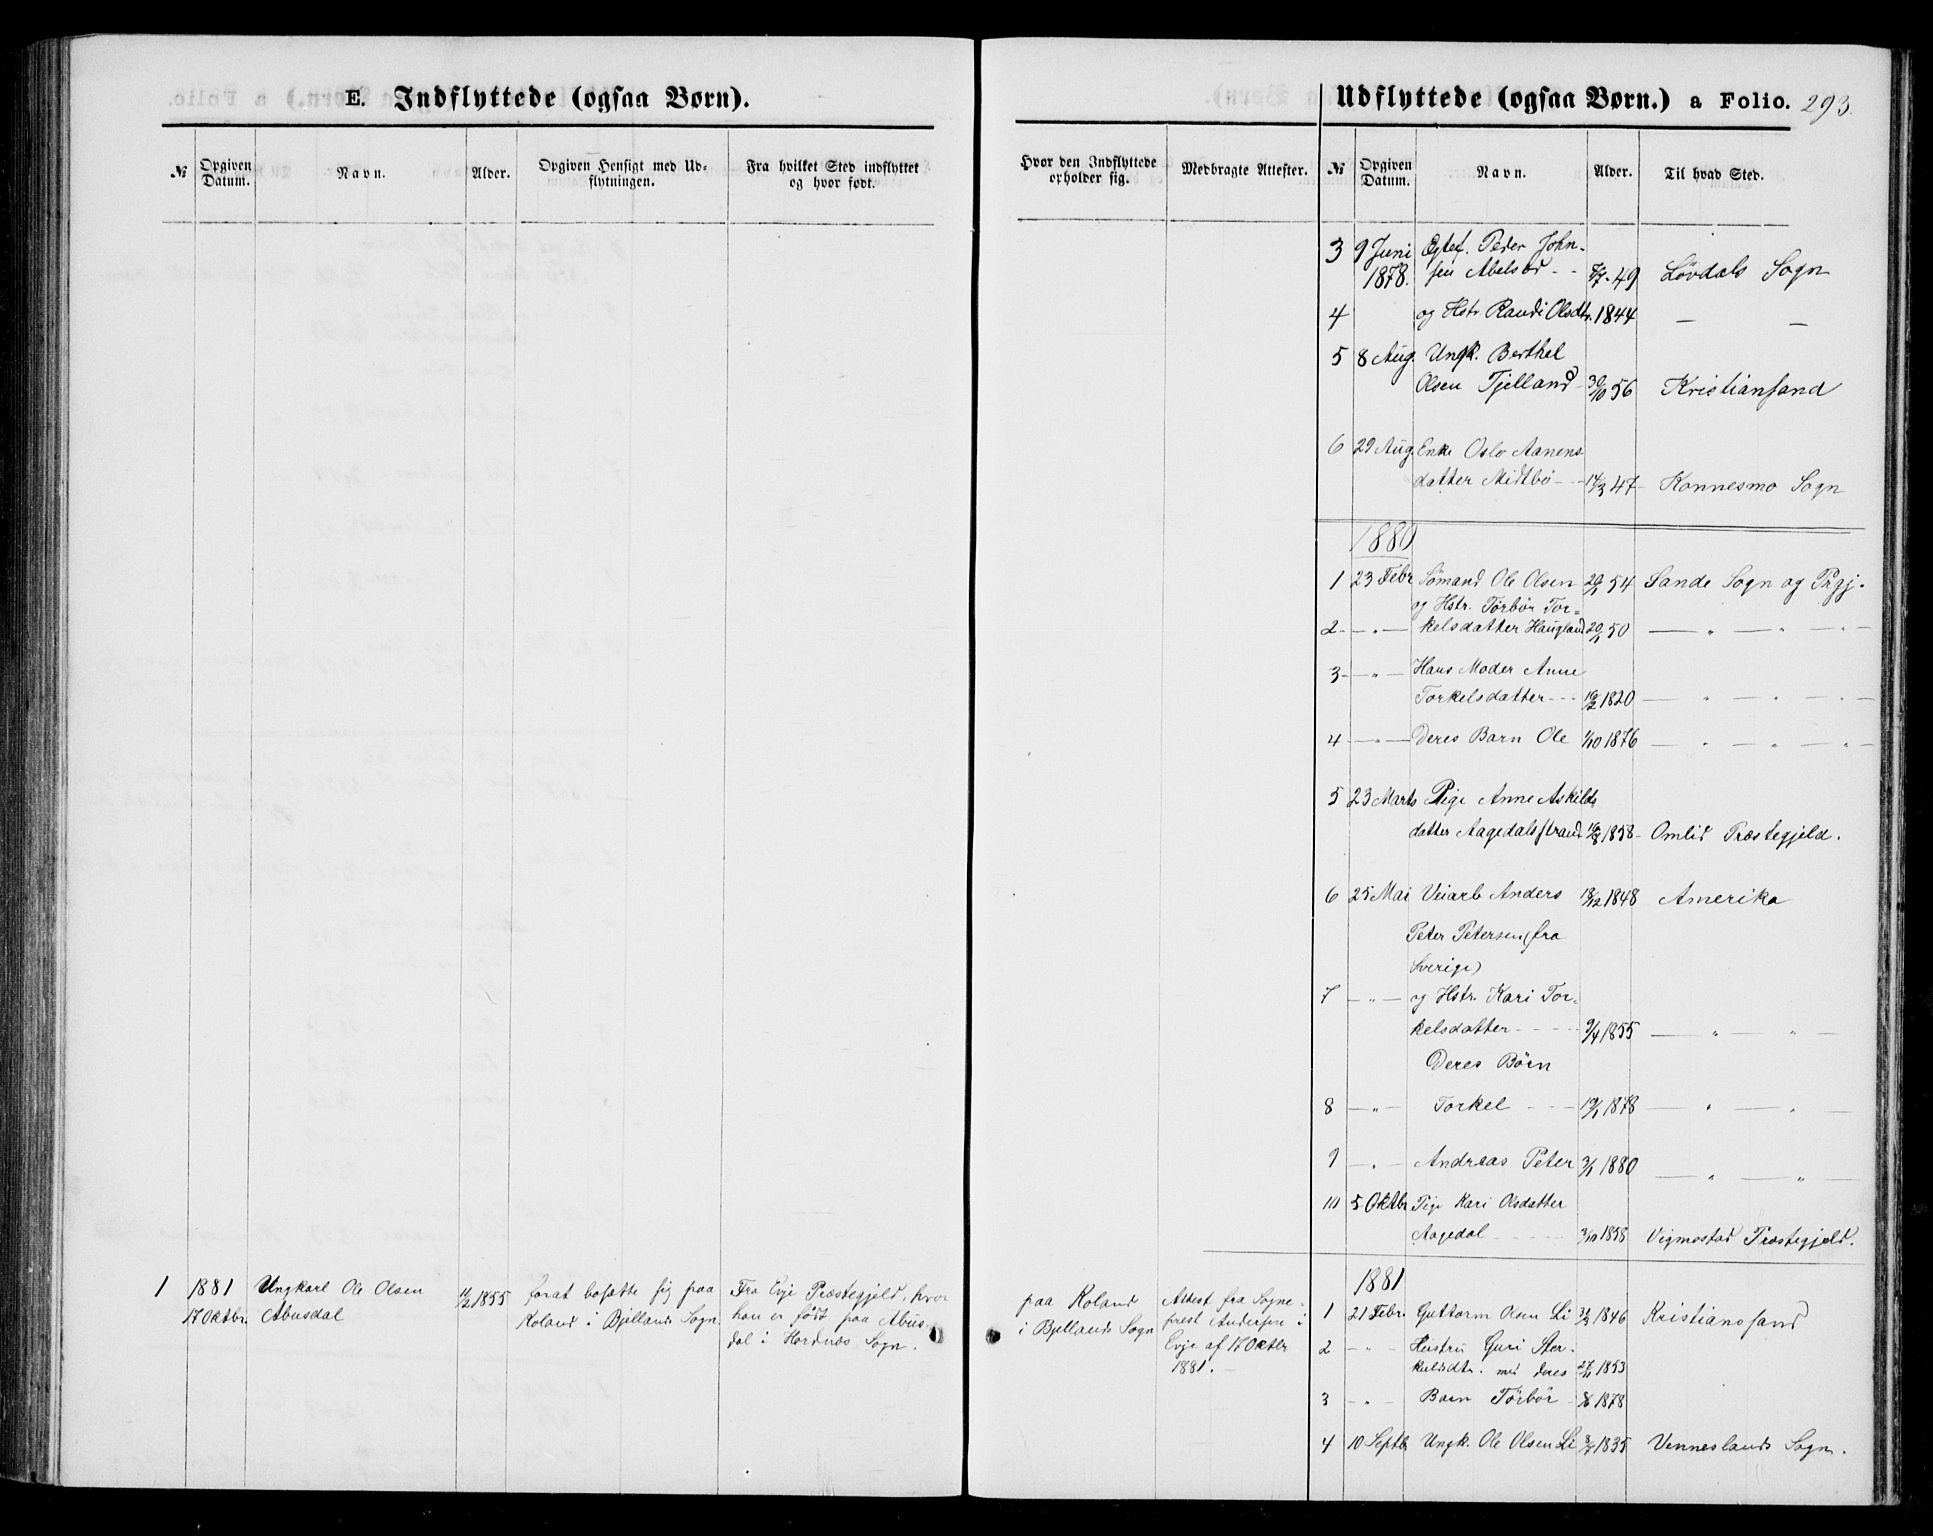 E. Indflyttede (ogsaa Børn).
№ Opgiven Datum. Navn. Alder. Opgiven Hensigt med Udflytningen. Fra hvilket Sted indflyttet og hvor født.
1 1881 Ungkarl Ole Olsen 11/2 1855 for at bosætte sig paa Fra Evje Præstegjeld, hvor
17 Oktbr. Abusdal Roland i Bjellands Sogn. han er født paa Abus-
dal i Hordnæs Sogn.
Udflyttede (ogsaa Børn.) a Folio. 293.
Hvor den Indflyttede opholder sig. Medbragte Attester. № Opgiven Datum. Navn. Alder. Til hvad Sted.
3 9 Juni Egtef. Peder John-
1878. sen Abelsæd - - 49 Lövdals Sogn
4 og Hstr. Randi Olsdtr. 1844 — —
5 8 Aug. Ungk. Berthel
Olsen Tjelland 30/10 56 Kristiansand
6 29 Aug. Enke Oslo Aanens
datter Midtbö - - 14/3 47 Konnesmo Sogn
1880
1 23 Febr Sömand Ole Olsen 20/1 54 Sande Sogn og Prgj.
og Hstr. Törbör Tor=
2 - — " — kelsdatter Haugland 20/1 50 — " — " — " —
3 - — " — Hans Moder Anne
Torkelsdatter - - - 16/2 1820 — " — " — " —
4 — " — Deres Barn Ole 1/10 1876 — " — " — " —
5 23 Marts Pige Anne Askilds
datter Aagedalsstrand 16/8 1858 - Omlid Præstegjeld.
6 25 Mai Veiarb Anders 18/12 1848 Amerika
Peter Petersen (fra
Sverige)
7 — " — og Hstr. Kari Tor-
kelsdatter - - - - 9/4 1855 — " — " —
Deres Börn
8 — " — Torkel - - - 19/1 1878 — " — " —
9 — " — Andreas Peter 3/1 1880 — " — " —
10 5 Oktbr. Pige Kari Olsdatter
Aagedal - - - - - 3/10 1858 Vigmostad Præstegjeld.
1881
paa Roland Attest fra Sogne-
i Bjellands Sogn prest Andersen i
Evje af 17 Oktbr
1881. -
1 21 Febr. Guttorm Olsen Li 1846 Kristianssand
2 - " - Hustru Guri Ster-
kulsdtr. med deres 27/11 1853
3 - " - Barn Törbör 1878
4 10 Septb. Ungk. Ole Olsen Li 1835 Venneslands Sogn.